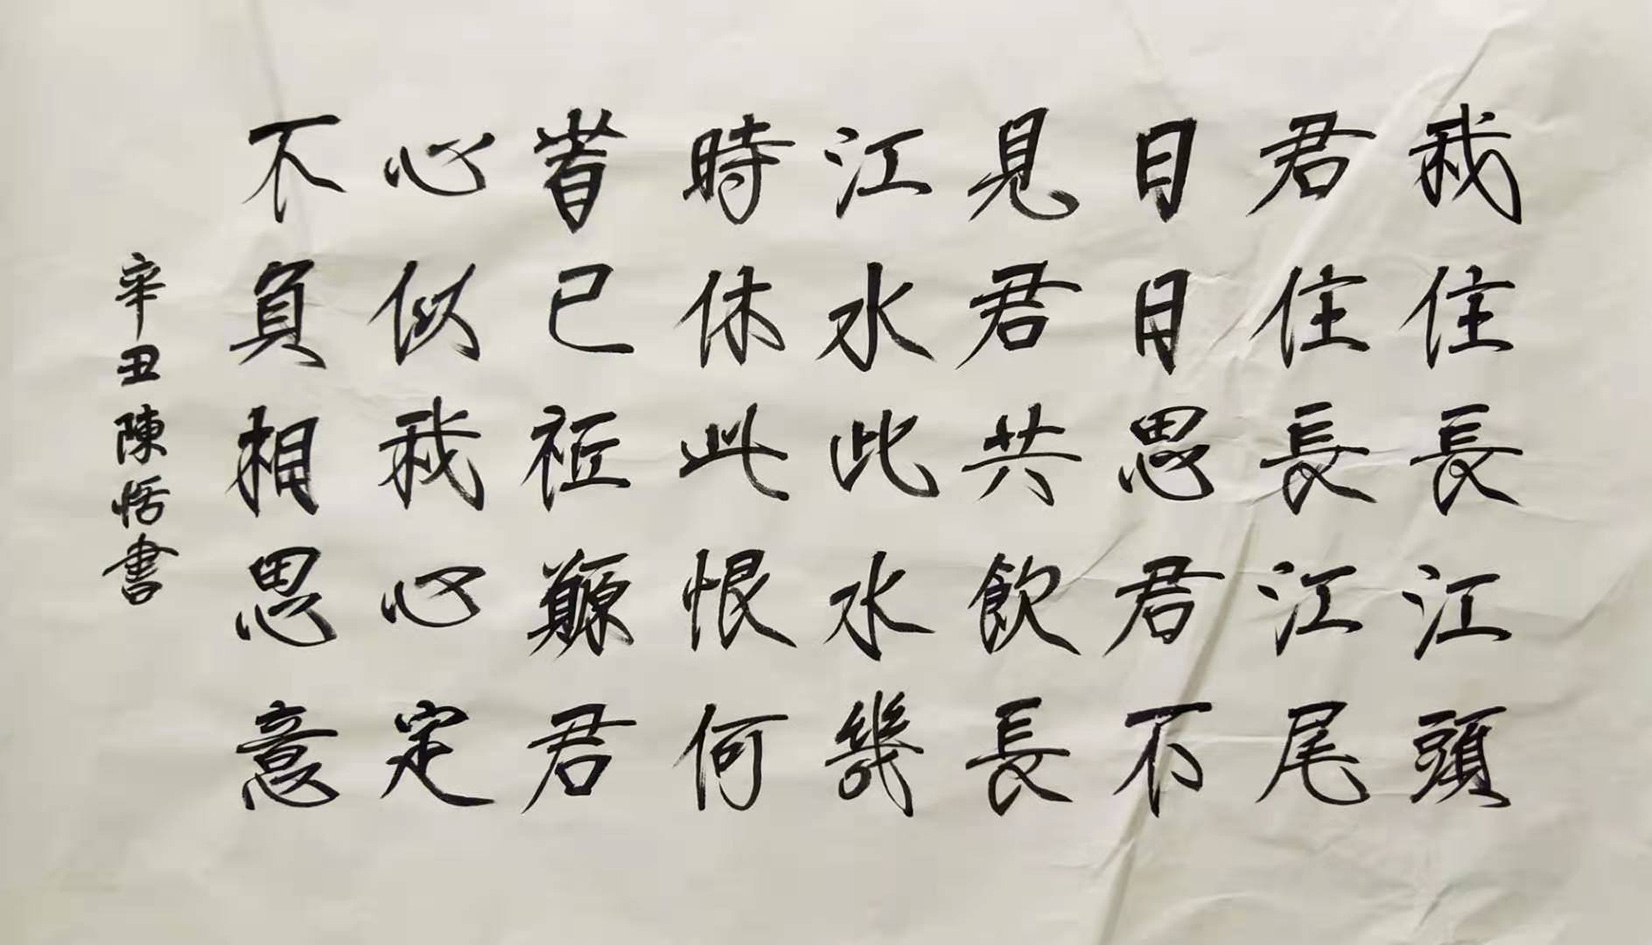 我住長江頭
君住長江尾
日日思君不
見君共飲長
江水此水幾
時休此恨何
旹已祗願君
心似我心定
不負相思意
辛丑陳恬書